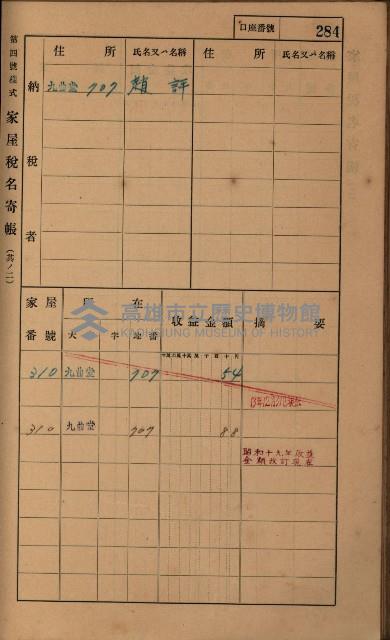 口座番號 284
第四號樣式 家屋稅名寄帳 (其ノ二)
住所 氏名又ハ名稱 住所 氏名又ハ名稱
納稅者
九曲堂 707 趙評
家屋番號 所在 收益金額 摘要
大字 地番
310 九曲堂 707 54
310 九曲堂 707 88
昭和十九年收益
金額改訂現在
高雄市立歷史博物館
KAOHSIUNG MUSEUM OF HISTORY